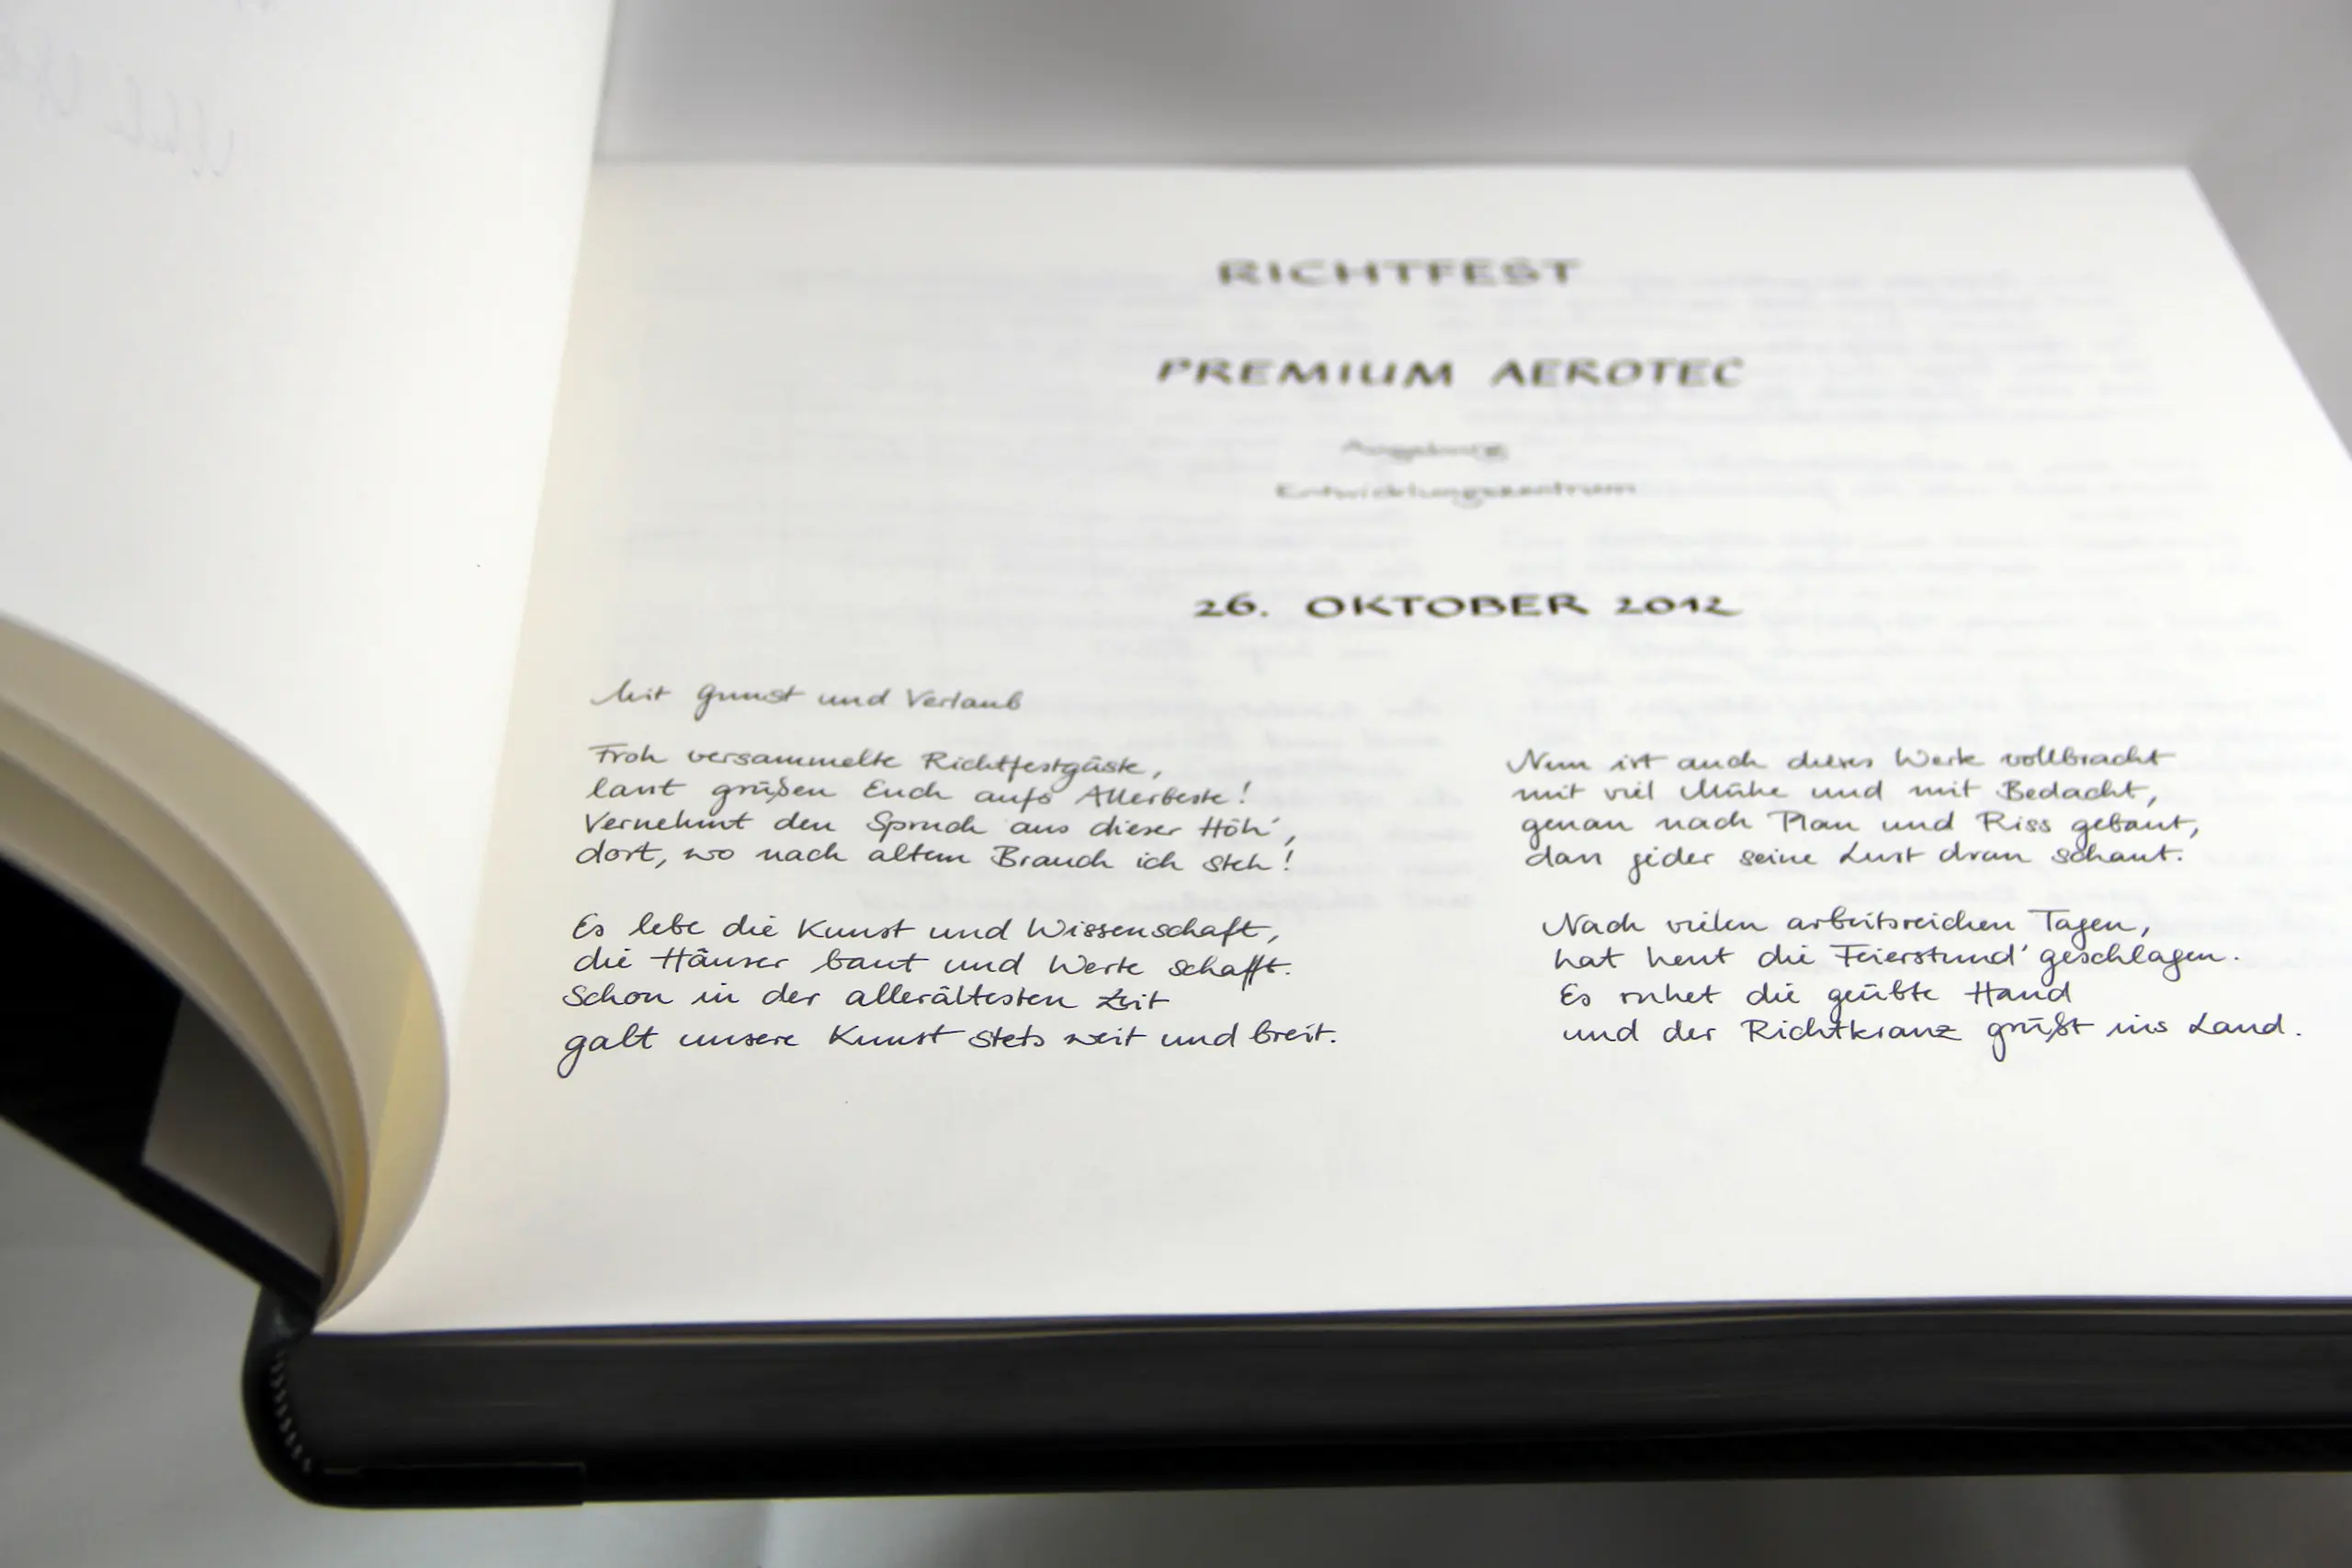 RICHTFEST
PREMIUM AEROTEC
Augsburg
Entwicklungszentrum
26. OKTOBER 2012
Mit Gunst und Verlaub
Froh versammelte Richtfestgäste,
lasst grüßen Euch aufs Allerbeste!
Vernehmt den Spruch aus dieser Höh',
dort, wo nach altem Brauch ich steh!
Es lebe die Kunst und Wissenschaft,
die Häuser baut und Werke schafft.
Schon in der allerältesten Zeit
galt unsere Kunst stets weit und breit.
Nun ist auch dieses Werk vollbracht
mit viel Mühe und mit Bedacht,
genau nach Plan und Riss gebaut,
dass jeder seine Lust dran schaut.
Nach vielen arbeitsreichen Tagen,
hat heut die Feierstund' geschlagen.
Es ruhet die geübte Hand
und der Richtkranz grüßt ins Land.